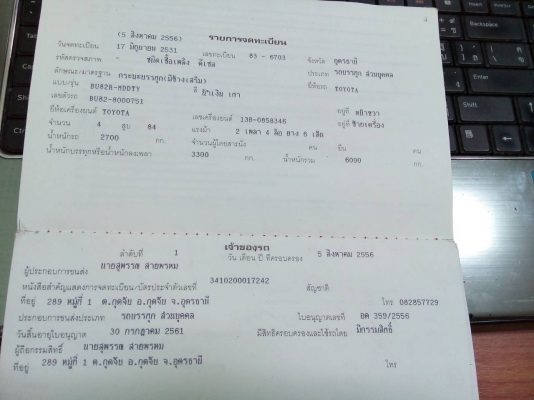 (5 สิงหาคม 2556) รายการจดทะเบียน
วันจดทะเบียน 17 มิถุนายน 2531 เลขทะเบียน 83 - 6703 จังหวัด อุดรธานี
รหัสตรวจสภาพ ชนิดเชื้อเพลิง ดีเซล ประเภท รถบรรทุก ส่วนบุคคล
ลักษณะ/มาตรฐาน กระบะบรรทุก(มีข้างเสริม) ยี่ห้อรถ TOYOTA
แบบ/รุ่น BU82R-HDDTY สี เทา
เลขตัวรถ BU82-8000751 อยู่ที่ หน้าขวา
ยี่ห้อเครื่องยนต์ TOYOTA เลขเครื่องยนต์ 13B-0858346 อยู่ที่ ซ้ายเครื่อง
จำนวน 4 สูบ 84 แรงม้า 2 เพลา 4 ล้อ ยาง 6 เส้น
น้ำหนักรถ 2700 กก. จำนวนผู้โดยสารนั่ง คน ยืน คน
น้ำหนักบรรทุกหรือน้ำหนักลงเพลา 3300 กก. น้ำหนักรวม 6000 กก.
เจ้าของรถ
ลำดับที่ 1 วัน เดือน ปี ที่ครอบครอง 5 สิงหาคม 2556
ผู้ประกอบการขนส่ง นายสุพรรณ สายพรหม
หนังสือสำคัญแสดงการจดทะเบียน/บัตรประจำตัวเลขที่ 3410200017242 สัญชาติ
ที่อยู่ 289 หมู่ที่ 1 ต.กุดจับ อ.กุดจับ จ.อุดรธานี โทร 082857729
ประกอบการขนส่งประเภท รถบรรทุก ส่วนบุคคล ใบอนุญาตเลขที่ อด 359/2556
วันสิ้นอายุใบอนุญาต 30 กรกฎาคม 2561 มีสิทธิครอบครองและใช้รถโดย มีกรรมสิทธิ์
ผู้ถือกรรมสิทธิ์ นายสุพรรณ สายพรหม
ที่อยู่ 289 หมู่ที่ 1 ต.กุดจับ อ.กุดจับ จ.อุดรธานี โทร